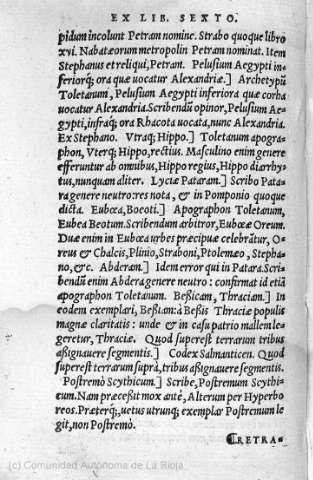 EX LIB. SEXTO.
pidum incolunt Petram nomine. Strabo quoque libro
xvi. Nabatæorum metropolin Petram nominat. Item
Stephanus et reliqui, Petran. Pelusium Aegypti in-
feriorq; ora quæ uocatur Alexandriæ.] Archetypũ
Toletanum, Pelusium Aegypti inferiora quæ corba
uocatur Alexandria. Scribendũ opinor, Pelusium Ae-
gypti, infraq; ora Rhacota uocata, nunc Alexandria.
Ex Stephano. Vtraq; Hippo.] Toletanum apogra-
phon, Vterq; Hippo, rectius. Masculino enim genere
efferuntur ab omnibus, Hippo regius, Hippo diarrhy-
tus, nunquam aliter. Lyciæ Pataram.] Scribo Pata-
ra genere neutro: res nota, & in Pomponio quoque
dicta. Eubœa, Boeoti.] Apographon Toletanum,
Eubea Beotum. Scribendum arbitror, Eubœæ Oreum.
Duæ enim in Eubœa urbes præcipuæ celebrãtur, O-
reus & Chalcis, Plinio, Straboni, Ptolemæo, Stepha-
no, &c. Abderam.] Idem error qui in Patara. Scri-
bendũ enim Abdera genere neutro: confirmat id etiã
apographon Toletanum. Beßicam, Thraciam.] In
eodem exemplari, Beßiam: à Beßis Thraciæ populis
magnæ claritatis: unde & in casu patrio mallem le-
geretur, Thraciæ. Quod superest terrarum tribus
aßignauere segmentis.] Codex Salmanticen. Quod
superest terrarum suprà, tribus aßignauere segmentis.
Postremò Scythicum.] Scribe, Postremum Scythi-
cum. Nam præceßit mox antè, Alterum per Hyperbo
reos. Præterq;, uetus utrunq; exemplar Postremum le
git, non Postremò.
RETRA-
(c) Comunidad Autónoma de La Rioja